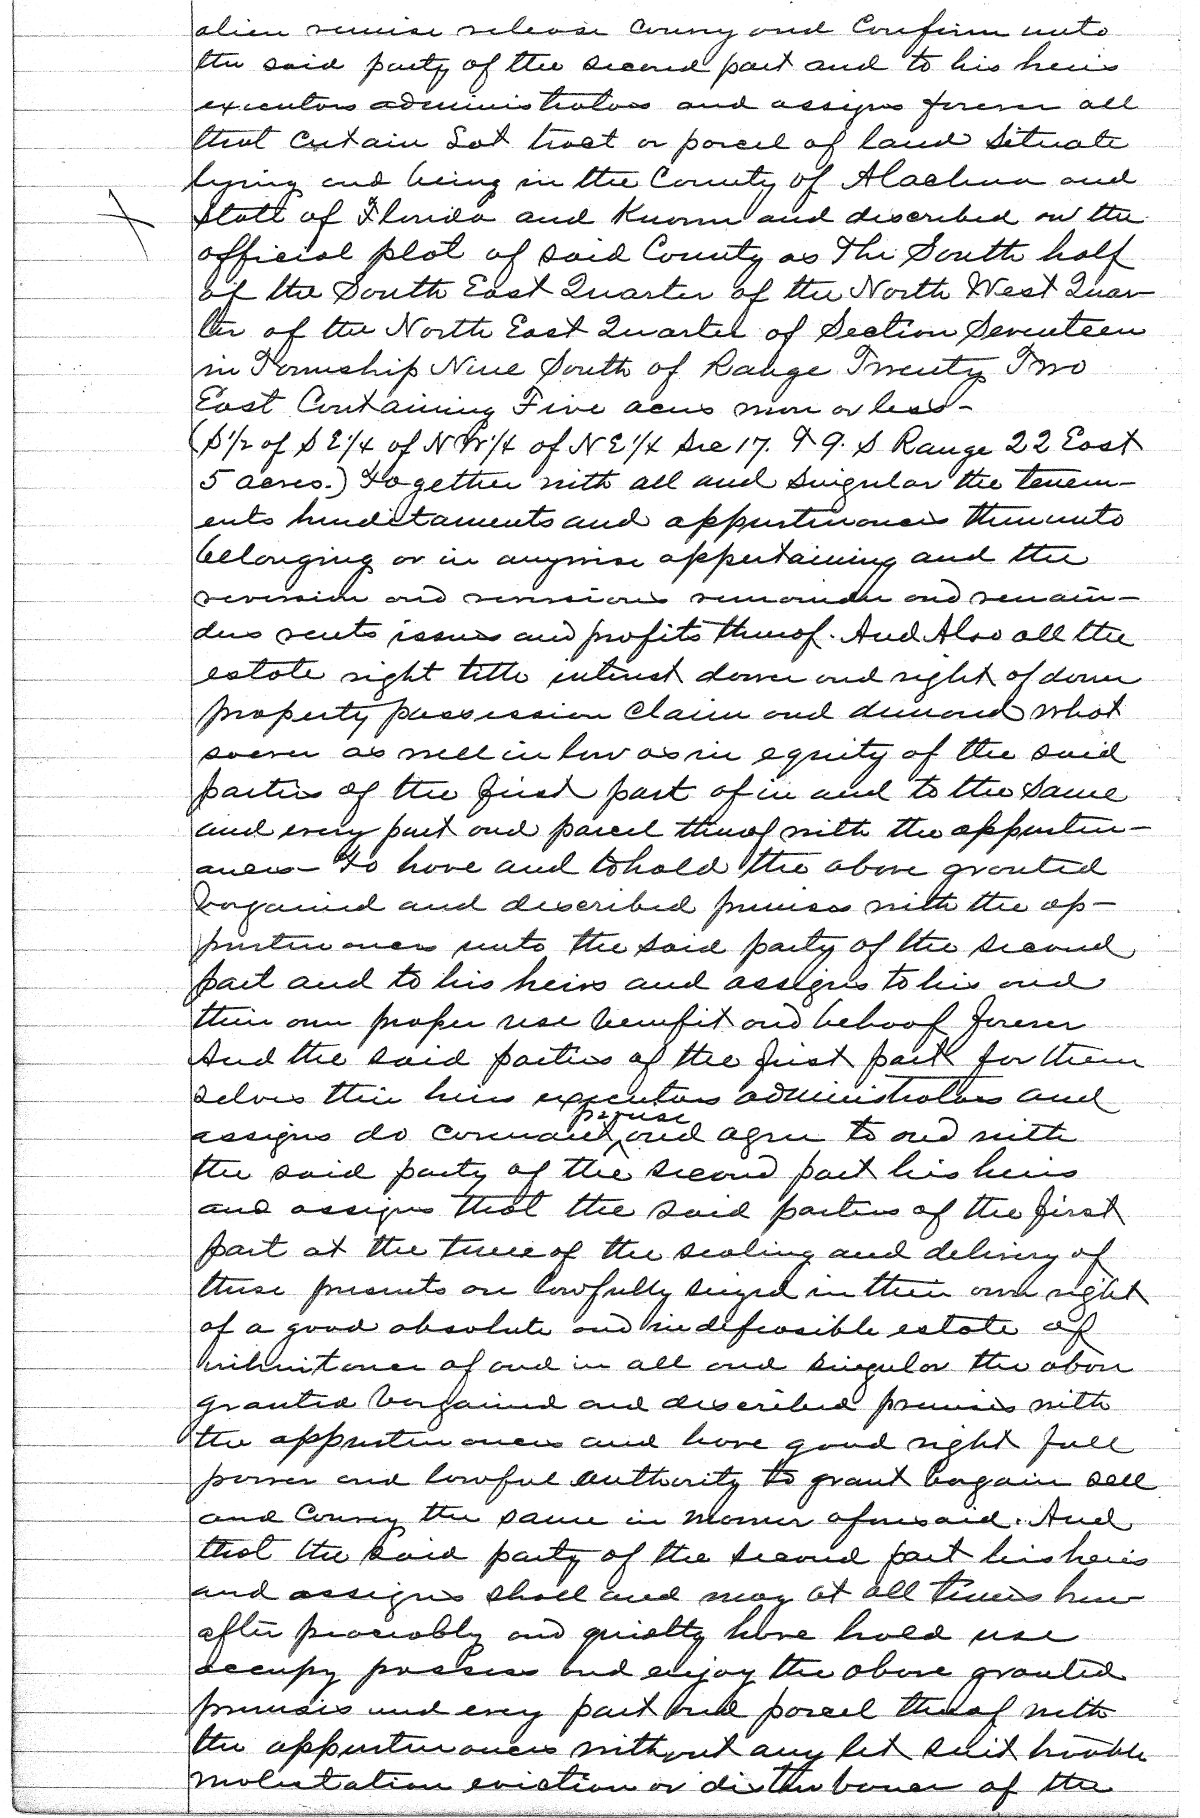 alien remise release convey and Confirm unto
the said party of the second part and to his heirs
executors administrators and assigns forever all
that certain Lot tract or parcel of land situate
lying and being in the County of Alachua and
State of Florida and Known and described on the
official plat of said County as The South half
of the South East Quarter of the North West Quar-
ter of the North East Quarter of Section Seventeen
in Township Nine South of Range Twenty Two
East Containing Five acres more or less-
(S 1/2 of S E 1/4 of N W 1/4 of N E 1/4 Sec 17. T 9. S Range 22 East
5 acres.) Together with all and singular the tenem-
ents hereditaments and appurtenances thereunto
belonging or in anywise appertaining and the
reversion and reversions remainder and remain-
ders rents issues and profits thereof. And Also all the
estate right title interest dower and right of dower
property possession claim and demand what
soever as well in law as in equity of the said
parties of the first part of in and to the same
and every part and parcel thereof with the appurten-
ances- To have and to hold the above granted
bargained and described premises with the ap-
purtenances unto the said party of the second
part and to his heirs and assigns to his and
their own proper use benefit and behoof forever
And the said parties of the first part for them
selves their heirs executors administrators and
promise
assigns do covenant ^ and agree to and with
the said party of the second part his heirs
and assigns that the said parties of the first
part at the time of the sealing and delivery of
these presents are lawfully seized in their own right
of a good absolute and indefeasible estate of
inheritance of and in all and singular the above
granted bargained and described premises with
the appurtenances and have good right full
power and lawful authority to grant bargain sell
and Convey the same in manner aforesaid. And
that the said party of the second part his heirs
and assigns shall and may at all times here
after peaceably and quietly have hold use
occupy possess and enjoy the above granted
premises and every part and parcel thereof with
the appurtenances without any let suit trouble
molestation eviction or disturbance of the